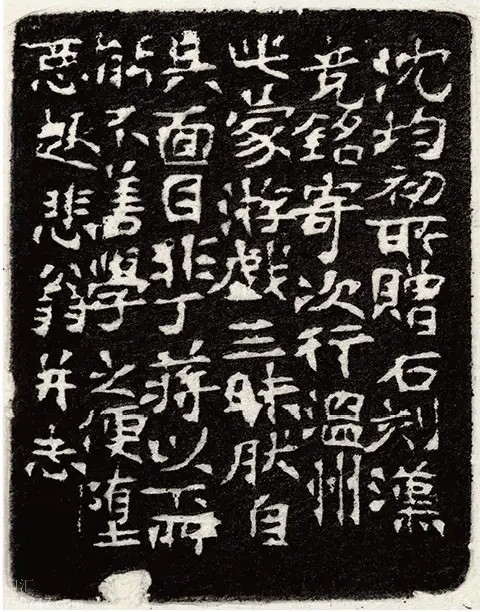 沈均初所贈石刻漢
竟銘寄次行溫州
此蒙游戲三昧肰自
具面目非丁蔣以下所
能不善學之便墮
惡趣悲翁并志